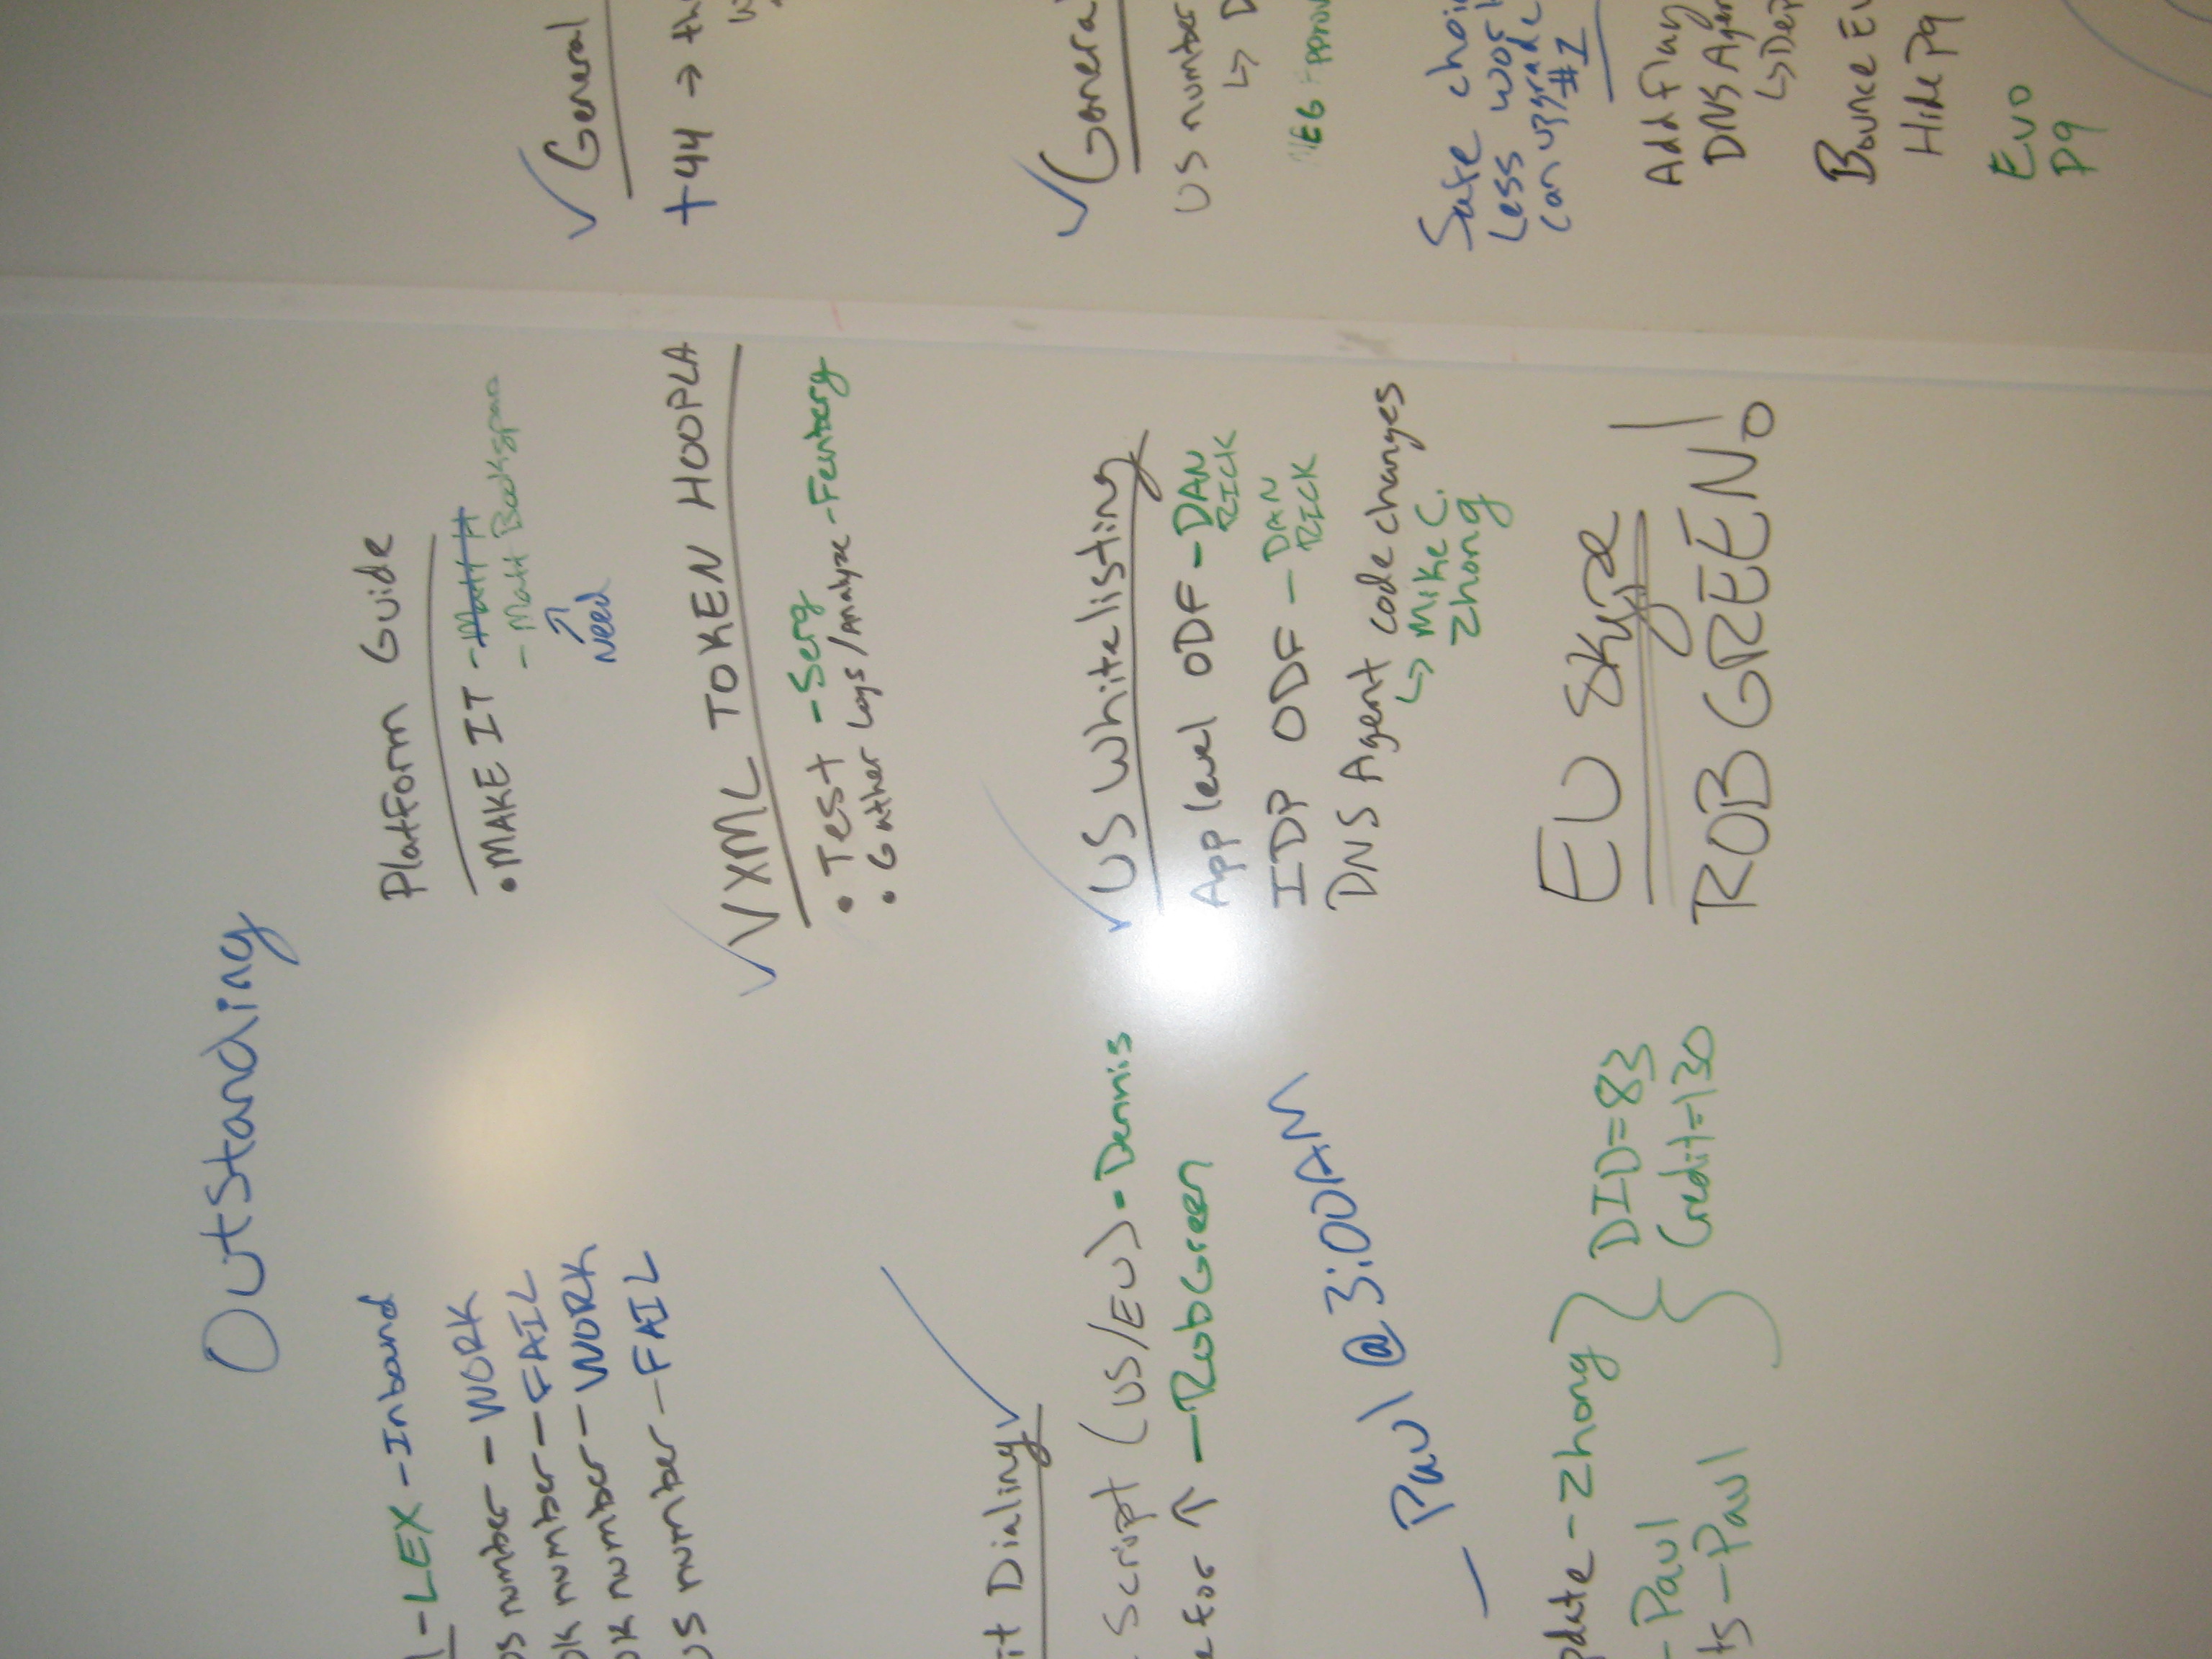 Outstanding
- LEX - Inband
number - WORK
number - FAIL
number - WORK
US number - FAIL
it Dialing
Script (US/EU) - Dennis
for ↑ - Rob Green
- Paul @ 3:00AM
pdate - Zhong } DID=83
- Paul } Credit=130
ts - Paul
Platform Guide
• MAKE IT - Matt H
- Matt Bookspan
↑
Need
VXML TOKEN HOOPLA
• Test - Serg
• Gather Logs/Analyze - Feinberg
✓ US Whitelisting
App level ODF - DAN
RICK
IDP ODF - DAN
RICK
DNS Agent code changes
↳ Mike C.
Zhong
EU Skype
ROB GREEN!
✓ General
+44 → th
✓ General
US number
↳ D
Safe choi
Less wor
can upgrade
#1
Add Flag
DNS Agen
↳ Dep
Bounce Ev
Hide P9
Evo
P9